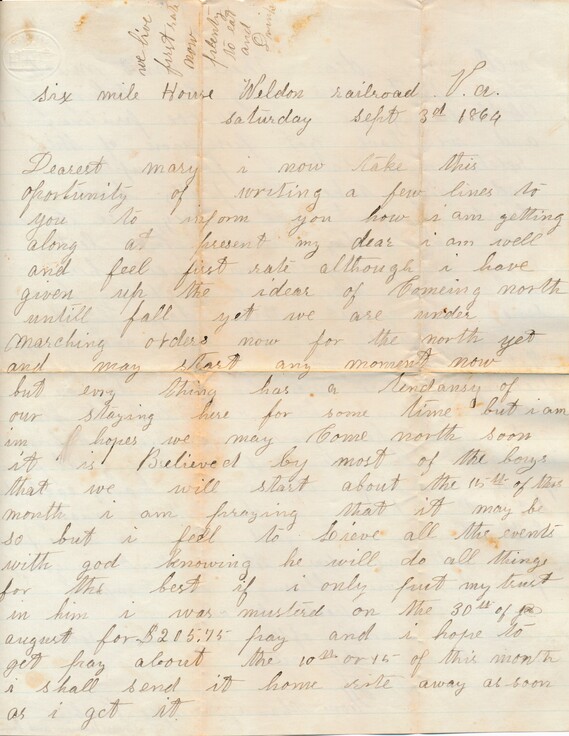 we live
first rate
now
plenty
to eat
and
Drink
six mile House Weldon railroad Va.
saturday sept 3rd 1864
Dearest mary i now take this
oportunity of writing a few lines to
you to inform you how i am getting
along at present my dear i am well
and feel first rate although i have
given up the idear of Comeing north
untill fall yet we are under
marching orders now for the north yet
and may start any moment now
but evry thing has a tendansy of
our staying here for some time but i am
in hopes we may Come north soon
it is Believed by most of the boys
that we will start about the 15th of this
month i am praying that it may be
so but i feel to Lieve all the events
with god knowing he will do all things
for the best if i only put my trust
in him i was musterd on the 30th of
august for $205.75 pay and i hope to
get pay about the 10th or 15 of this month
i shall send it home rite away as soon
as i get it.